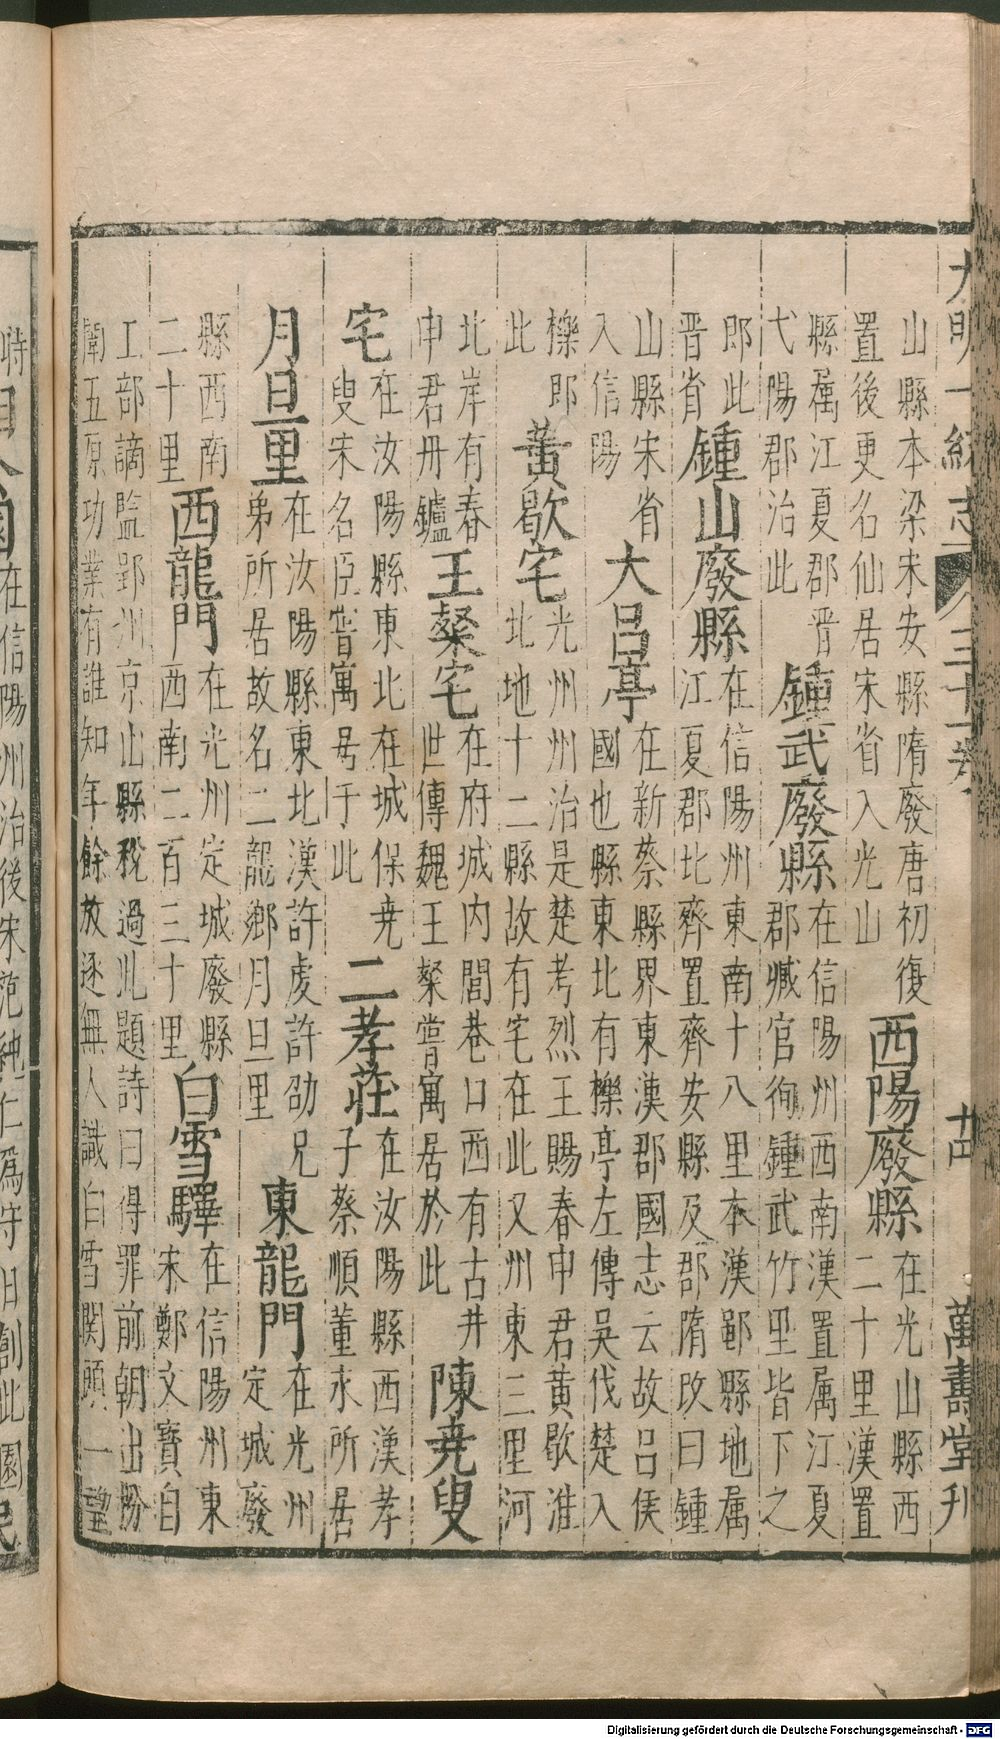 大明一統志 三十一卷 廿四 萬壽堂刊
山縣本梁宋安縣隋廢唐初復
置後更名仙居宋省入光山
西陽廢縣
在光山縣西
二十里漢置
縣属江夏郡晋
弋陽郡治此
鍾武廢縣
在信陽州西南漢置属江夏
郡臧官徇鍾武竹里皆下之
郎此
晋省
鍾山廢縣
在信陽州東南十八里本漢鄳縣地属
江夏郡北齊置齊安縣及郡隋改曰鍾
山縣宋省
入信陽
大呂亭
在新蔡縣界東漢郡國志云故呂侯
國也縣東北有櫟亭左傳吳伐楚入
櫟郎
此
黃歇宅
光州州治是楚考烈王賜春申君黄歇淮
北地十二縣故有宅在此又州東三里河
北岸有春
申君丹鑪
王粲宅
在府城内閭巷口西有古井
世傳魏王粲嘗寓居於此
陳堯叟
宅
在汝陽縣東北在城保堯
叟宋名臣嘗寓居于此
二孝莊
在汝陽縣西漢孝
子蔡順董永所居
月旦里
在汝陽縣東北漢許虔許劭兄
弟所居故名二龍鄉月旦里
東龍門
在光州
定城廢
縣西南
二十里
西龍門
在光州定城廢縣
西南二百三十里
白雪驛
在信陽州東
宋鄭文寳自
工部謫監郢州京山縣稅過此題詩曰得罪前朝出粉
闈五原功業有誰知年餘放逐無人識白雪関頭一望
時
園
在信陽州治後宋范純仁爲守日創此園民
Digitalisierung gefördert durch die Deutsche Forschungsgemeinschaft - DFG